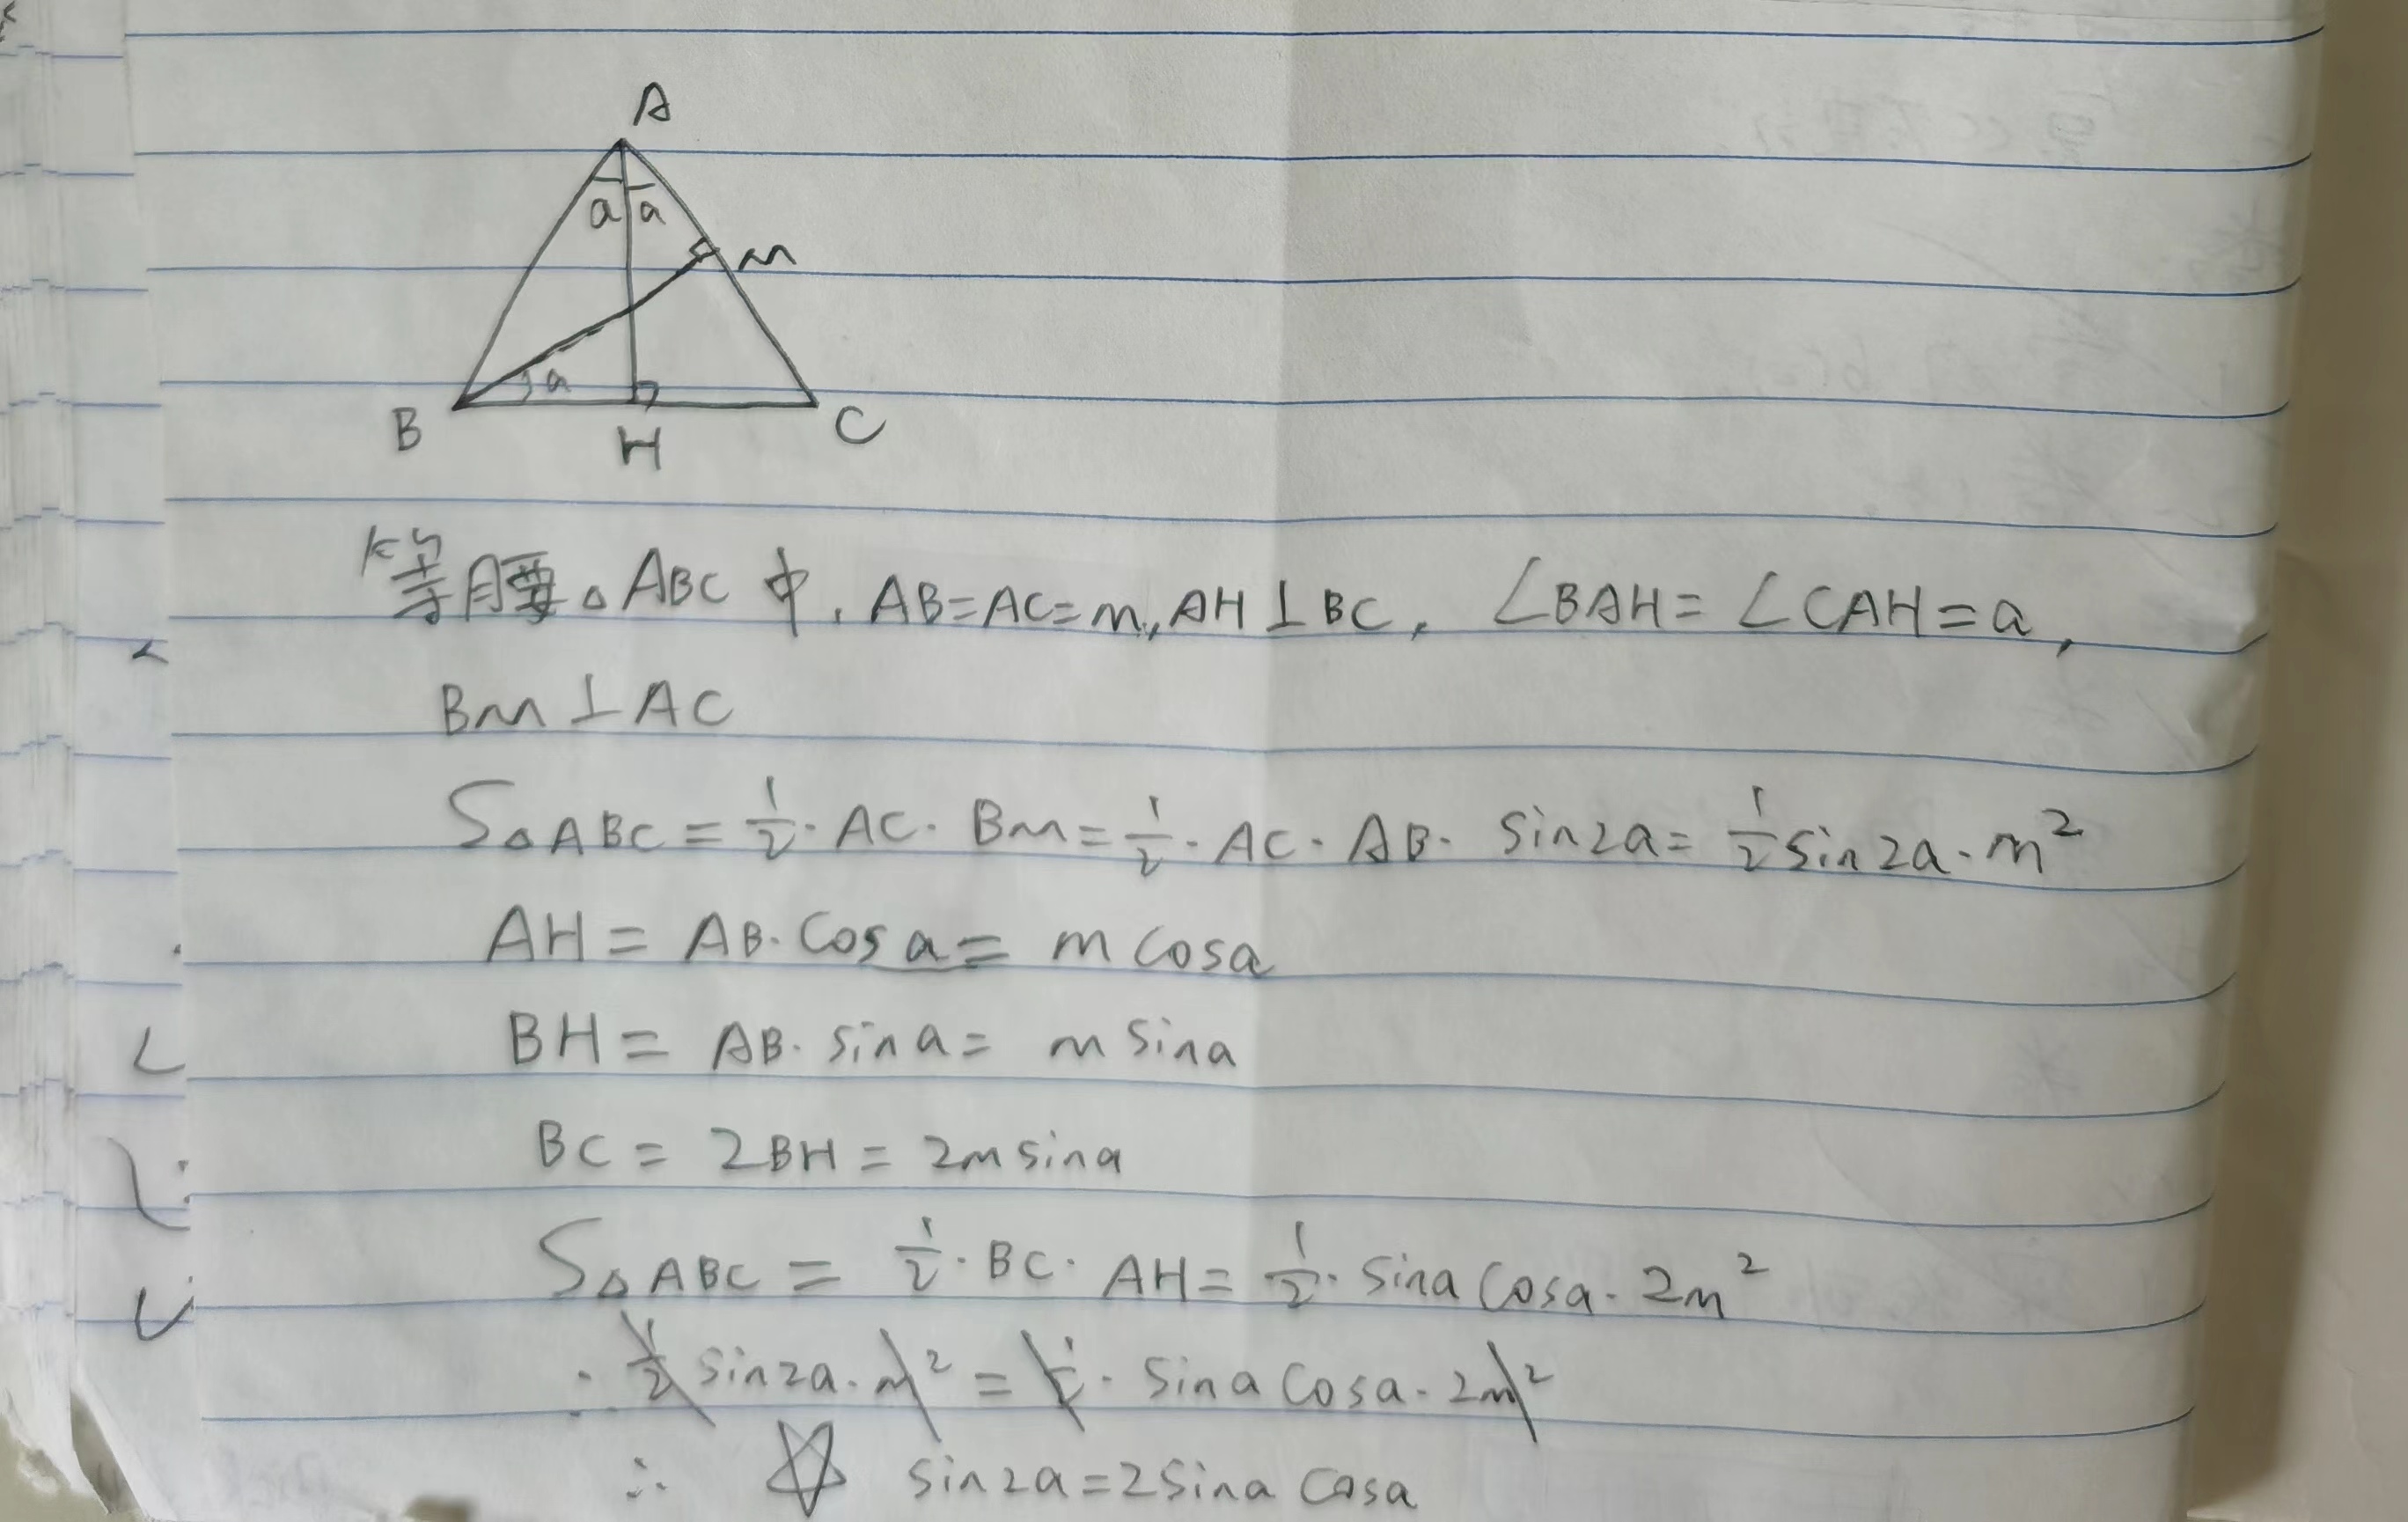 A
a a
M
a
B H C
等腰△ABC中,AB=AC=m,AH⊥BC,∠BAH=∠CAH=a,
BM⊥AC
S△ABC=1/2·AC·BM=1/2·AC·AB·sin2a=1/2sin2a·m²
AH=AB·cosa=mcosa
BH=AB·sina=msina
BC=2BH=2msina
S△ABC=1/2·BC·AH=1/2·sinacosa·2m²
∴1/2sin2a·m²=1/2·sinacosa·2m²
∴☆sin2a=2sinacosa